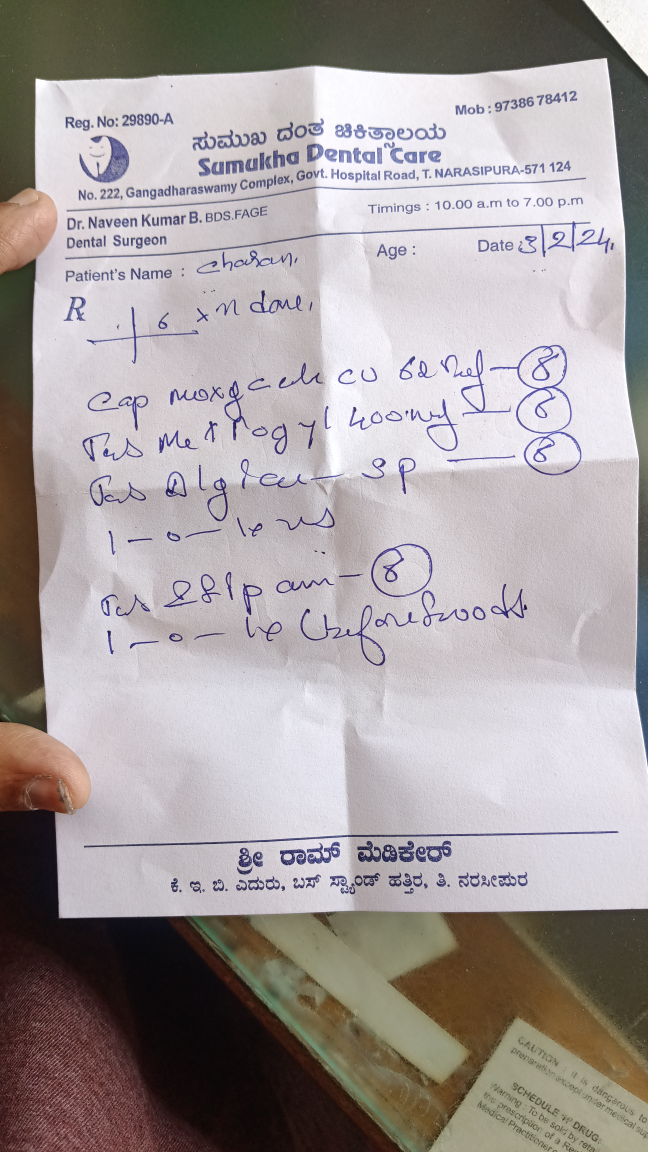 Reg. No: 29890-A
Mob : 97386 78412
ಸುಮುಖ ದಂತ ಚಿಕಿತ್ಸಾಲಯ
Sumukha Dental Care
No. 222, Gangadharaswamy Complex, Govt. Hospital Road, T. NARASIPURA-571 124
Dr. Naveen Kumar B. BDS.FAGE
Timings : 10.00 a.m to 7.00 p.m
Dental Surgeon
Patient's Name : Charan,
Age :
Date 3/2/24,
R
6 x n done,
Cap CV 625mg — 8
Tab Metrogyl 400mg — 8
Tab — SP — 8
1 — 0 — 1
Tab — 8
1 — 0 — 1 (before food)
ಶ್ರೀ ರಾಮ್ ಮೆಡಿಕೇರ್
ಕೆ. ಇ. ಬಿ. ಎದುರು, ಬಸ್ ಸ್ಟ್ಯಾಂಡ್ ಹತ್ತಿರ, ತಿ. ನರಸೀಪುರ
CAUTION : It is dangerous to
preparation except under medical sup
SCHEDULE 'H' DRUG:
Warning : To be sold by reta
the prescription of a Re
Medical Practitioner